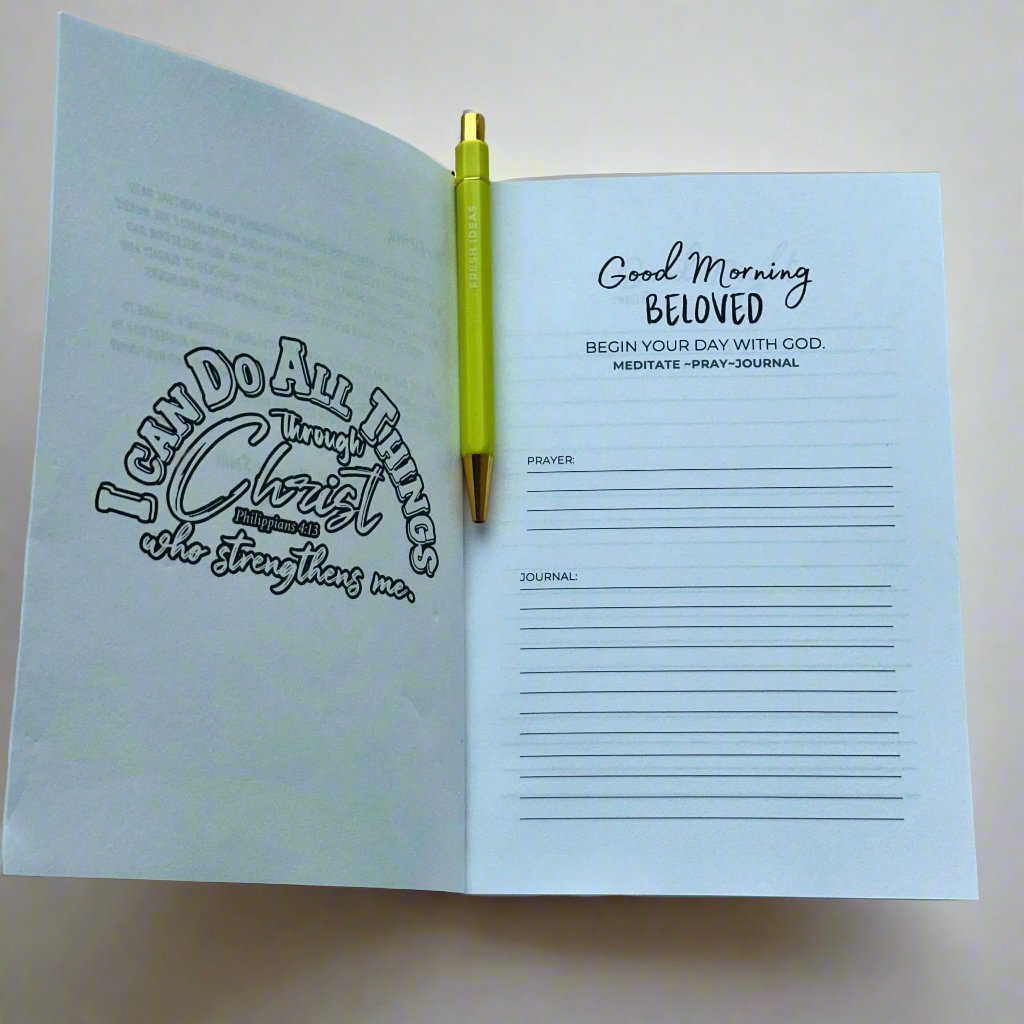 I CAN DO ALL THINGS
through
Christ
Philippians 4:13
who strengthens me.
FRESH IDEAS
Good Morning
BELOVED
BEGIN YOUR DAY WITH GOD.
MEDITATE ~PRAY~JOURNAL
PRAYER:
JOURNAL: